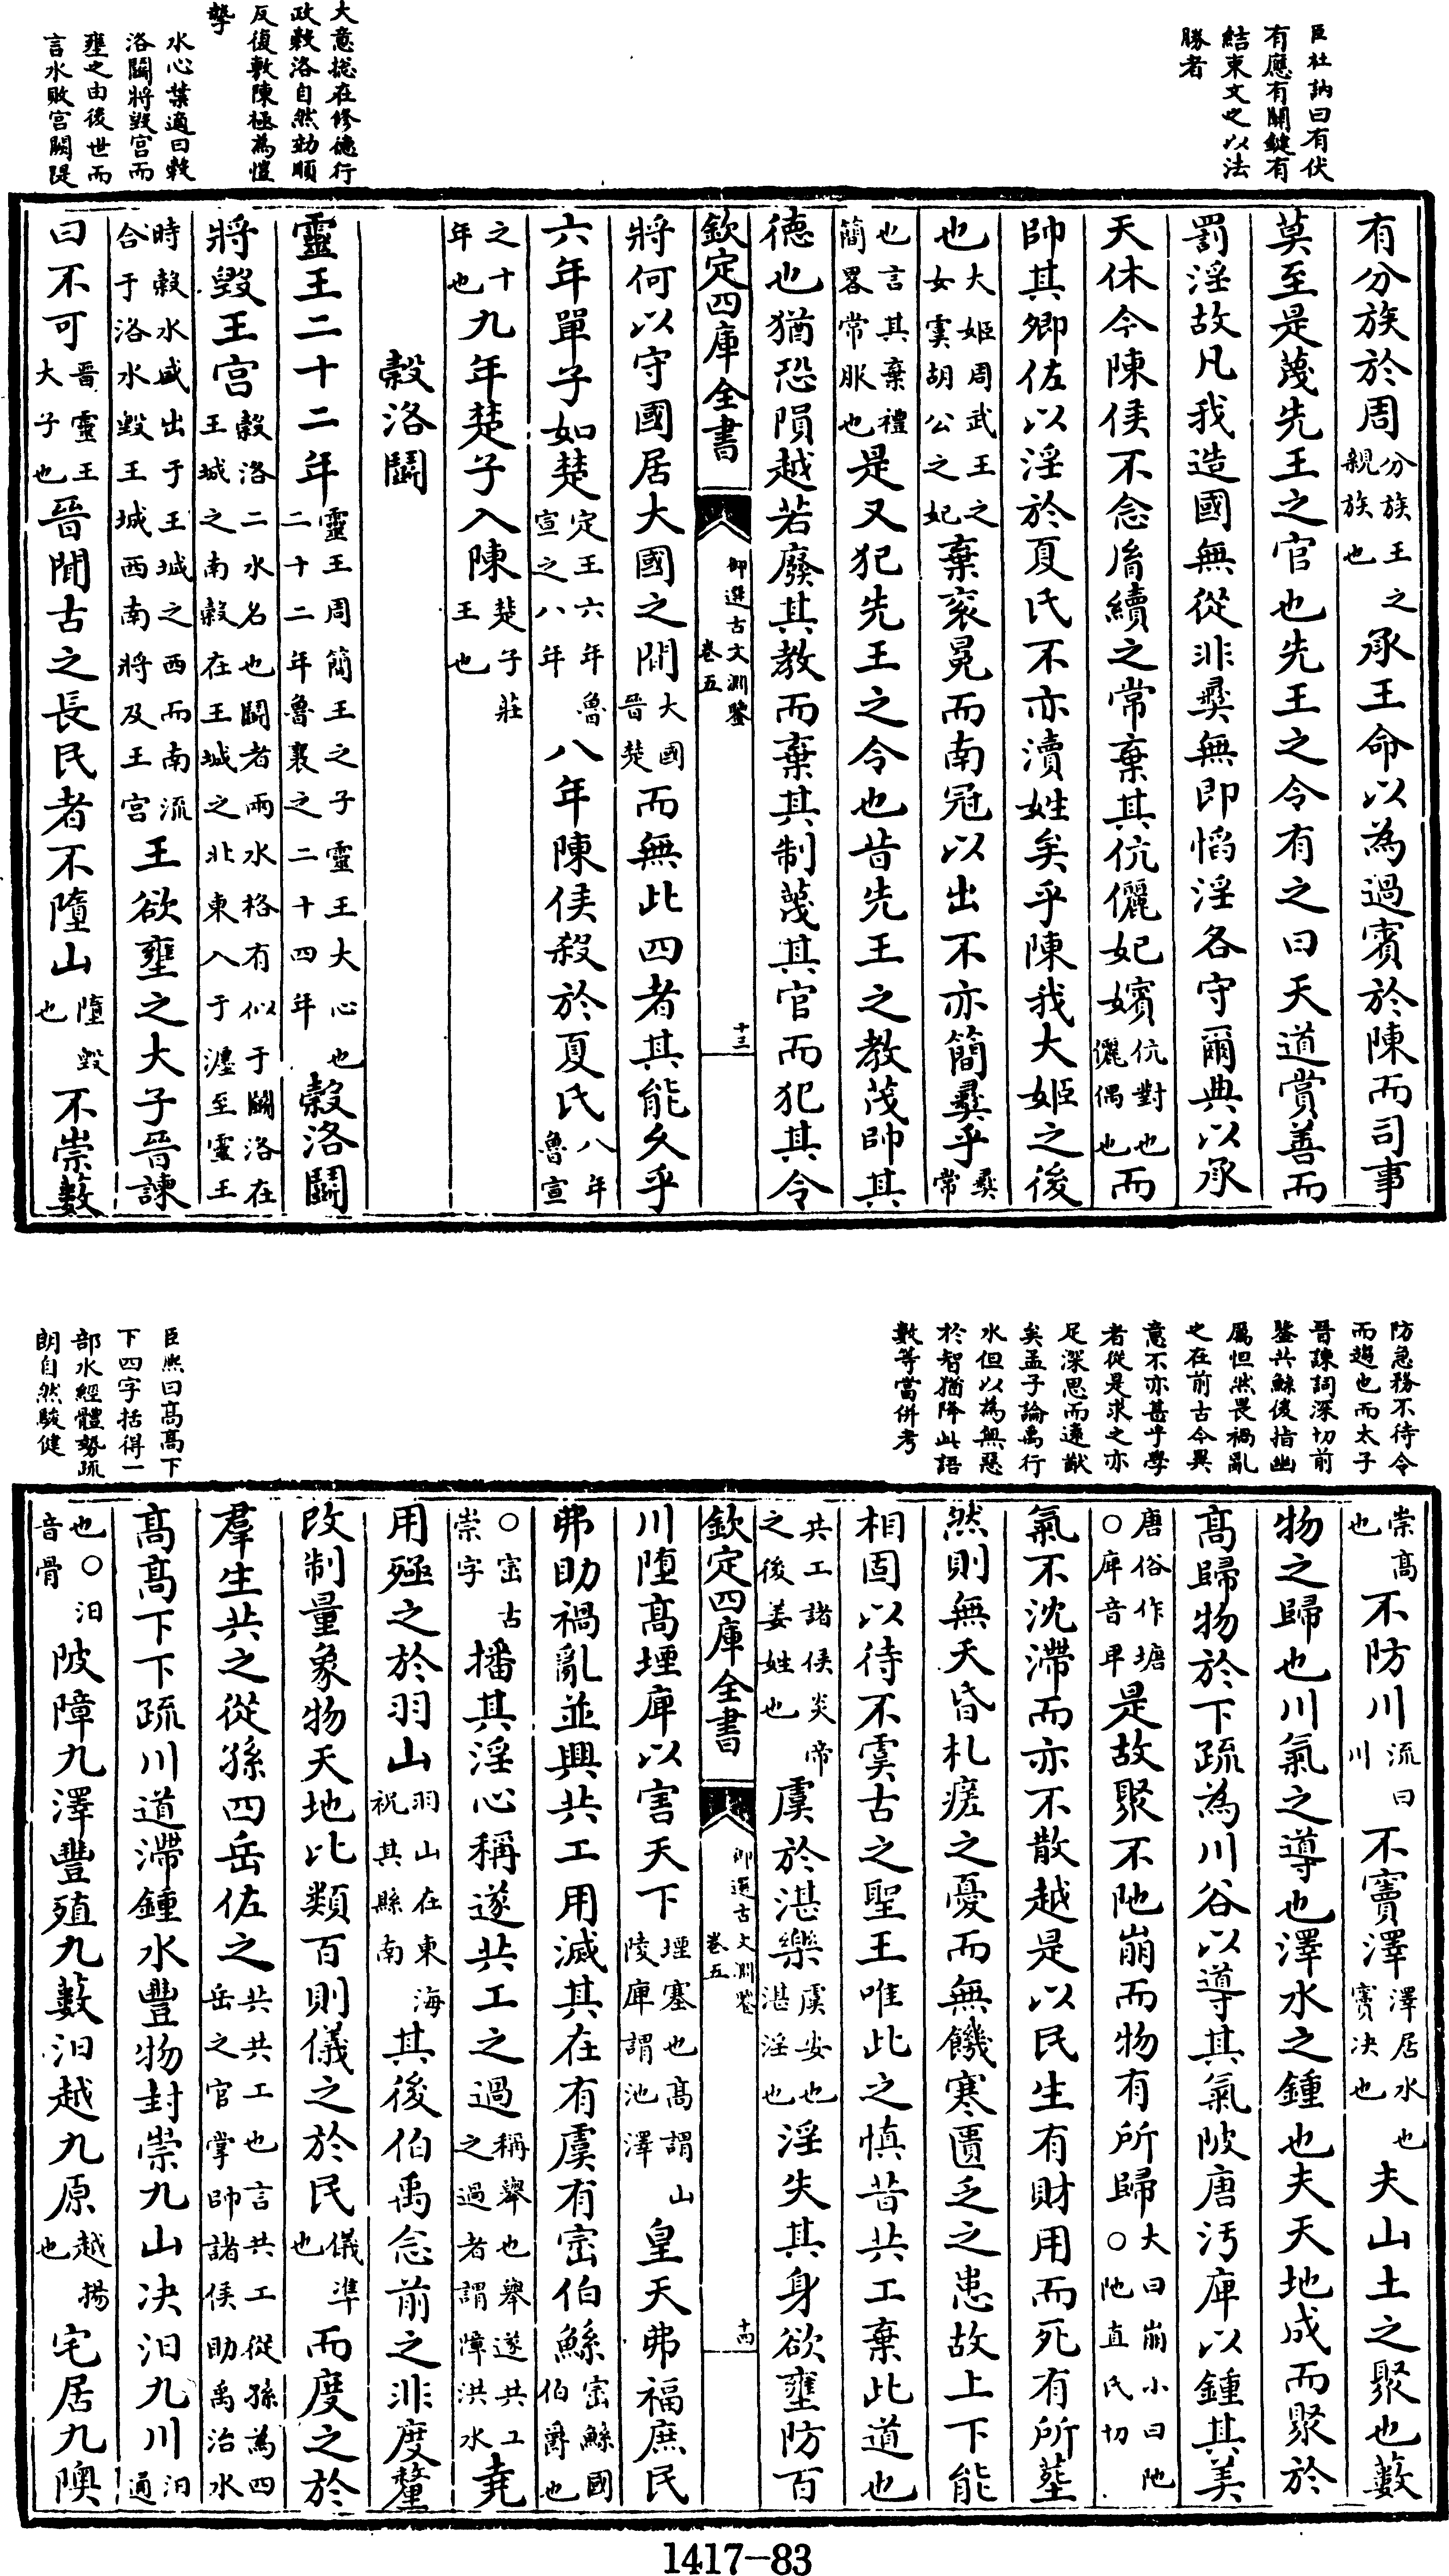 臣杜訥曰有伏
有應有關鍵有
結束文之以法
勝者
大意總在修德行
政榖洛自然効順
反復敷陳極為愷
摯
水心葉適曰榖
洛鬭將毀宮而
壅之由後世而
言水敗宮闕隄
有分族於周分族王之親族也承王命以為過賓於陳而司事
莫至是蔑先王之官也先王之令有之曰天道賞善而
罰淫故凡我造國無從非彛無即慆淫各守爾典以承
天休今陳侯不念胤續之常棄其伉儷妃嬪伉對也儷偶也而
帥其卿佐以淫於夏氏不亦瀆姓矣乎陳我大姬之後
也大姬周武王之女虞胡公之妃棄衮冕而南冠以出不亦簡彛乎彛常
也言其棄禮簡畧常服也是又犯先王之令也昔先王之教茂帥其
德也猶恐隕越若廢其教而棄其制蔑其官而犯其令
欽定四庫全書 御選古文淵鑒 卷五 十三
將何以守國居大國之間大國晉楚而無此四者其能久乎
六年單子如楚定王六年魯宣之八年八年陳侯殺於夏氏八年魯宣
之十年也九年楚子入陳楚子莊王也
榖洛鬭
靈王二十二年靈王周簡王之子靈王大心也二十二年魯襄之二十四年榖洛鬭
將毀王宮榖洛二水名也鬭者兩水格有似于鬭洛在王城之南榖在王城之北東入于瀍至靈王
時榖水盛出于王城之西而南流合于洛水毀王城西南將及王宮王欲壅之大子晉諫
曰不可晉靈王大子也晉聞古之長民者不墮山墮毀也不崇藪
防急務不待令
而趨也而太子
晉諫詞深切前
鑒共鯀後指幽
厲怛然畏禍亂
之在前古今異
意不亦甚乎學
者從是求之亦
足深思而遠猷
矣孟子論禹行
水但以為無惡
於智猶降此語
數等當併考
臣熙曰高高下
下四字括得一
部水經體勢疏
朗自然駿健
崇高也不防川流曰川不竇澤澤居水也竇决也夫山土之聚也藪
物之歸也川氣之導也澤水之鍾也夫天地成而聚於
高歸物於下疏為川谷以導其氣陂唐汚庳以鍾其美
唐俗作塘○庳音卑是故聚不阤崩而物有所歸大曰崩小曰阤○阤直氏切
氣不沈滯而亦不散越是以民生有財用而死有所塟
然則無夭昏札瘥之憂而無饑寒匱乏之患故上下能
相固以待不虞古之聖王唯此之慎昔共工棄此道也
共工諸侯炎帝之後姜姓也虞於湛樂虞安也湛淫也淫失其身欲壅防百
欽定四庫全書 御選古文淵鑒 卷五 十四
川墮高堙庳以害天下堙塞也高謂山陵庳謂池澤皇天弗福庶民
弗助禍亂並興共工用滅其在有虞有崈伯鯀崈鯀國伯爵也
○崈古崇字播其淫心稱遂共工之過稱舉也舉遂共工之過者謂障洪水堯
用殛之於羽山羽山在東海祝其縣南其後伯禹念前之非度釐
改制量象物天地比類百則儀之於民儀準也而度之於
羣生共之從孫四岳佐之共共工也言共工從孫為四岳之官掌帥諸侯助禹治水
高高下下疏川道滯鍾水豐物封崇九山决汩九川汩通
也○汩音骨陂障九澤豐殖九藪汩越九原越揚也宅居九隩
1417—83